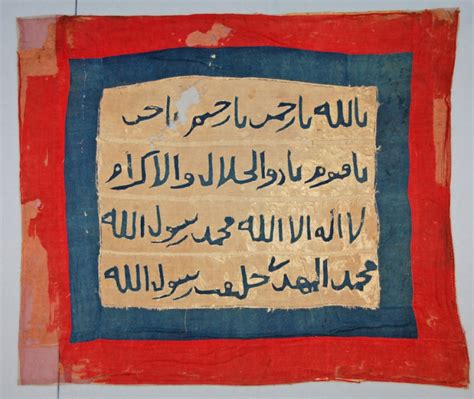 يا الله يا رحمن يا رحيم يا حى
يا قيوم يا ذو الجلال والاكرام
لا اله الا الله محمد رسول الله
محمد المهدى خليفة رسول الله